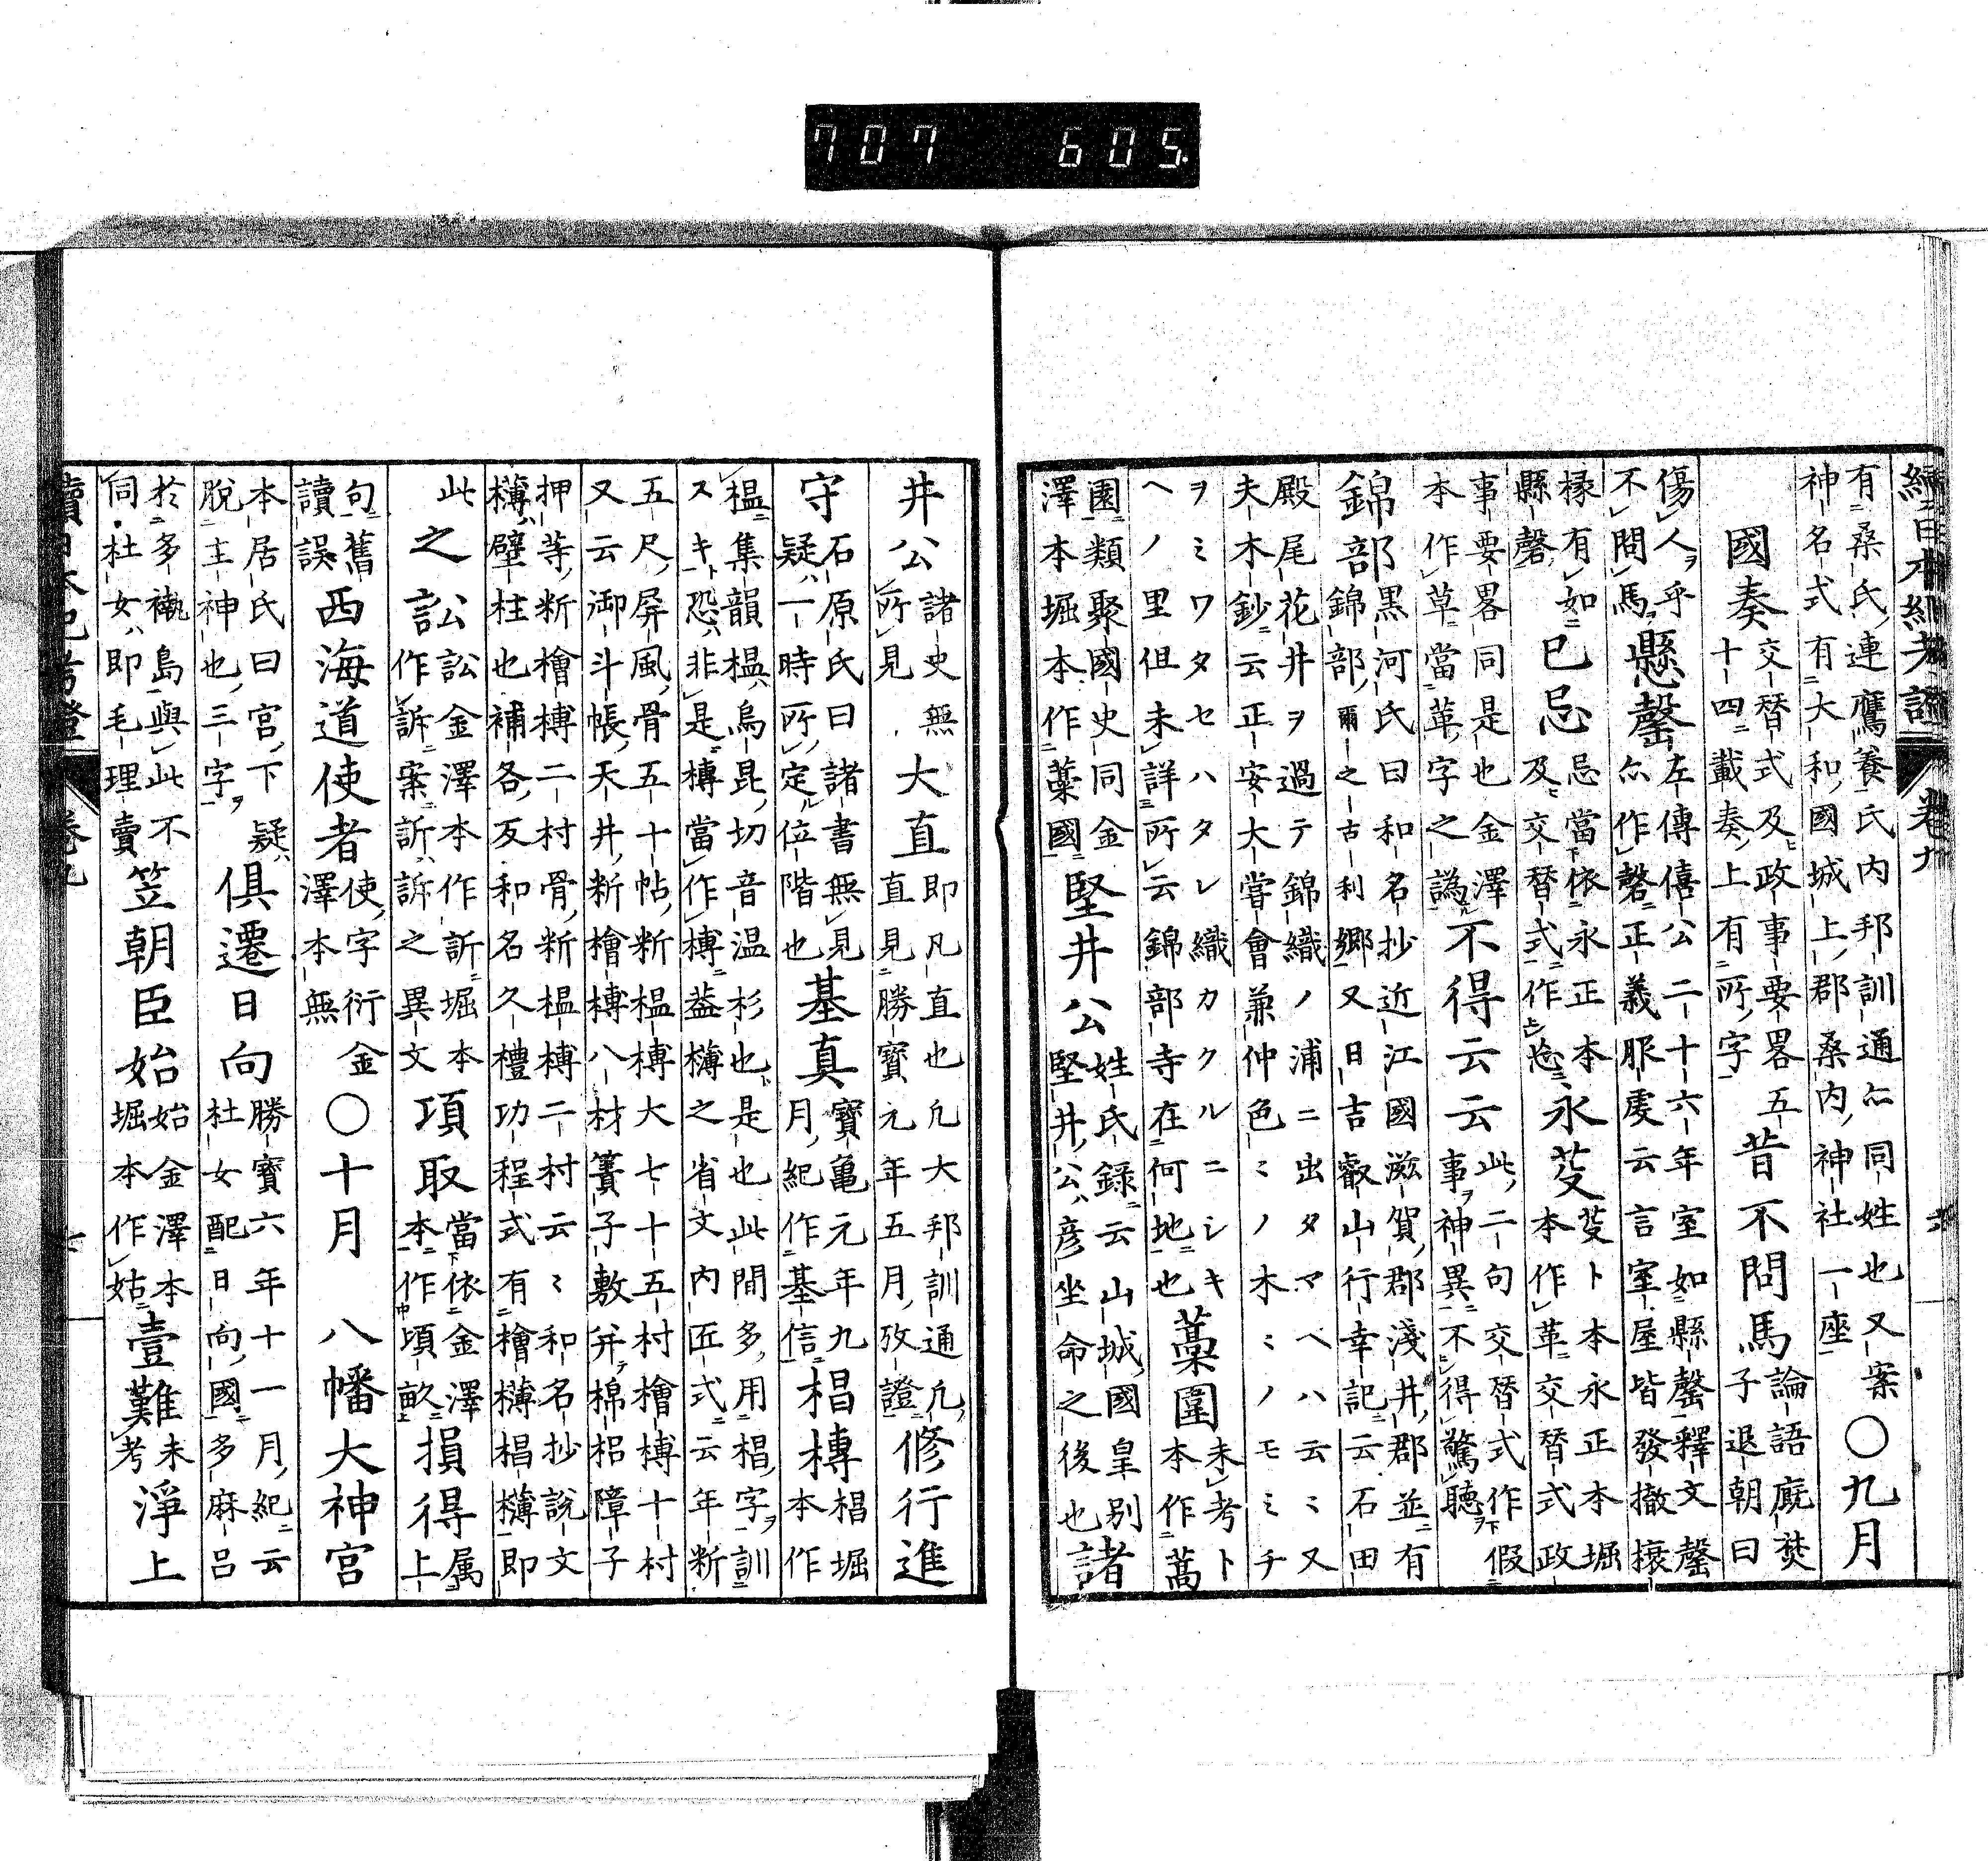 707 605.
續日本紀考證 卷九 六
有桑氏連鷹養氏内邦訓通亦同姓也又案
神名式有大和國城上郡桑内神社一座 〇九月
國奏 交替式及政事要畧五
十四載奏上有所字 昔不問馬 論語廐焚
子退朝曰
傷人乎
不問馬 懸罄 左傳僖公二十六年室如縣罄釋文罄
亦作磬正義服虔云言室屋皆發撤榱
椽有如
縣磬 已忌 忌當依永正本
及交替式作忘 永芟 芟卜本永正本堀
本作革交替式政
事要畧同是也金澤
本作草當革字之譌 不得云云 此二句交替式作假
事神異不得驚聽
錦部 黒河氏曰和名抄近江國滋賀郡淺井郡並有
錦部爾之古利郷又日吉叡山行幸記云石田
殿尾花井ヲ過テ錦織ノ浦ニ出タマヘハ云ミ又
夫木鈔云正安大嘗會兼仲色ミノ木ミノモミチ
ヲミワタセハタレ織カクルニシキ
ヘノ里但未詳所云錦部寺在何地也 藁園 未考卜
本作萬
園類聚國史同金
澤本堀本作藁國 堅井公 姓氏録云山城國皇別
堅井公彦坐命之後也 諸
井公 諸史無
所見 大直 即凡直也凡大邦訓通凡
直見勝寶元年五月攷證 修行進
守 石原氏曰諸書無見
疑一時所定位階也 基真 寶亀元年九
月紀作基信 椙榑 椙堀
本作
榲集韻榲烏昆切音温杉也是也此間多用椙字訓
スキ恐非是榑當作榑葢欂之省文内匠式云年新
五尺屏風骨五十帖新榲榑大七十五村檜榑十村
又云御斗帳天井新檜榑八材簀子敷弁棉梠障子
押等新檜榑二村骨新榲榑二村云ミ和名抄説文
欂壁柱也補各反和名久禮功程式有檜欂椙欂即
此
之訟 訟金澤本作訢堀本
作訴案訢訴之異文 項取 當依金澤
本作頃畝 損得 属
上
句舊
讀誤 西海道使者 使字衍金
澤本無 〇十月 八幡大神宮
本居氏曰宮下疑
脱主神也三字 俱遷日向 勝寶六年十一月紀云
杜女配日向國多麻呂
於多褹島與此不
同杜女即毛理賣 笠朝臣始 始金澤本
堀本作姑 壹難 未
考 淨上
續日本紀考證 卷九 七